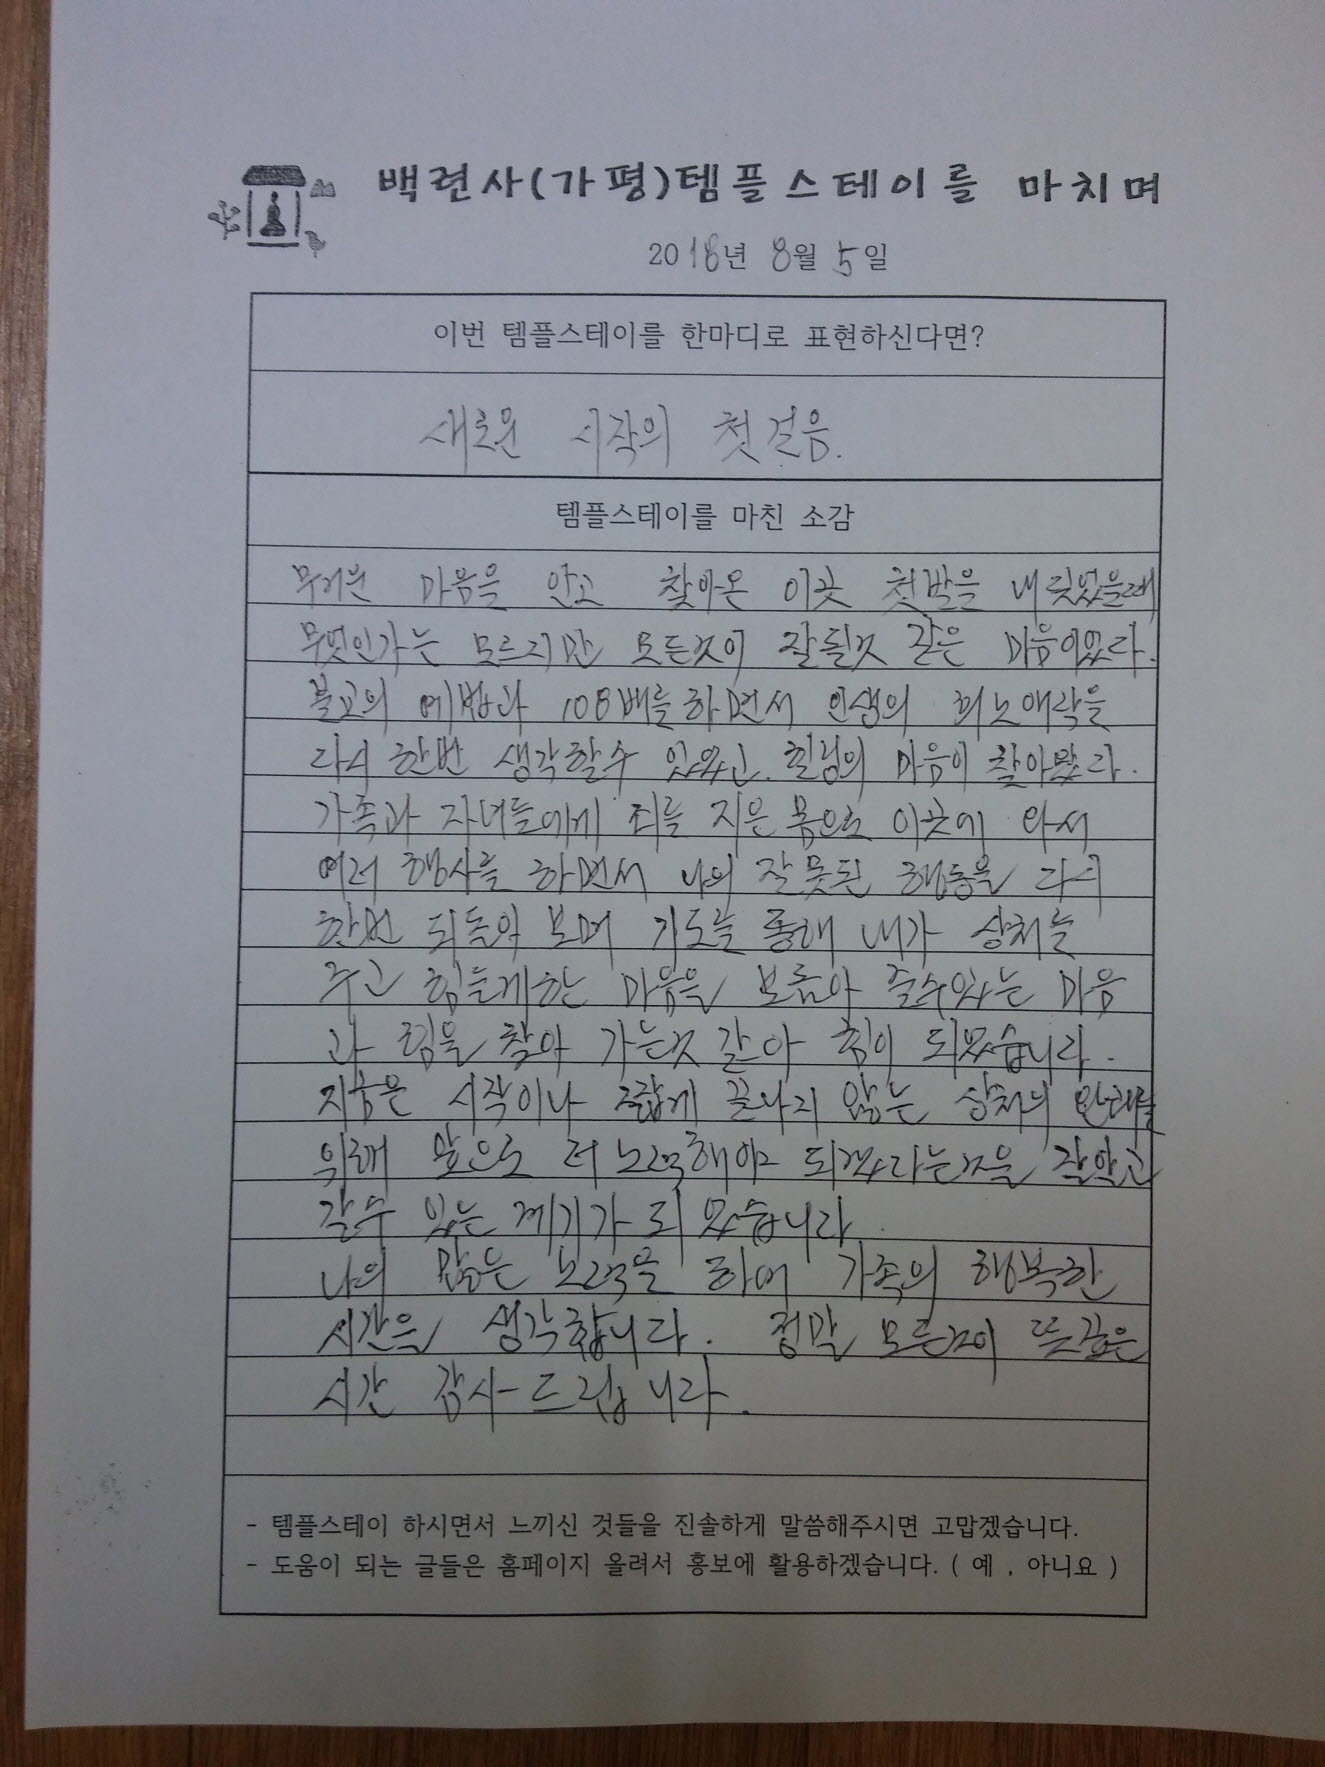 백련사(가평)템플스테이를 마치며
2018년 8월 5일
이번 템플스테이를 한마디로 표현하신다면?
새로운 시작의 첫걸음.
템플스테이를 마친 소감
무거운 마음을 안고 찾아온 이곳 첫발을 내딪었을때
무엇인가는 모르지만 모든것이 잘될것 같은 마음이었다.
불교의 예법과 108배를 하면서 인생의 희노애락을
다시 한번 생각할수 있었고. 힐닝의 마음이 찾아왔다.
가족과 자녀들에게 죄를 지은 몸으로 이곳에 와서
여러 행사를 하면서 나의 잘못된 행동을 다시
한번 되돌아 보며 기도를 통해 내가 상처를
주고 힘들게한 마음을 보듬아 줄수있는 마음
과 힘을 찾아 가는것 같아 힘이 되었습니다.
지금은 시작이나 쉽게 끝나지 않는 상처의
위해 앞으로 더 노력해야 되겠다라는것을 잘알고
갈수 있는 계기가 되었습니다.
나의 많은 노력을 하여 가족의 행복한
시간을 생각합니다. 정말 모든것이 뜻깊은
시간 감사드립니다.
- 템플스테이 하시면서 느끼신 것들을 진솔하게 말씀해주시면 고맙겠습니다.
- 도움이 되는 글들은 홈페이지 올려서 홍보에 활용하겠습니다. ( 예 , 아니요 )